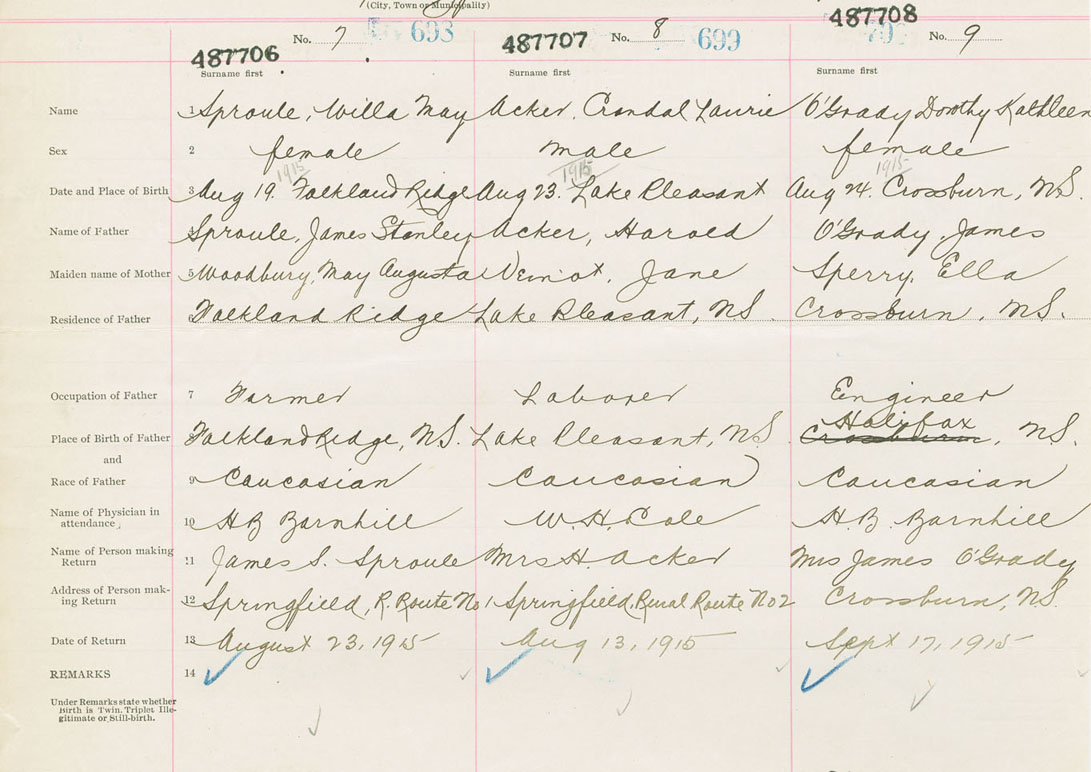 (City, Town or Municipality)
487706 No. 7 693 487707 No. 8 699 487708 No. 9
Surname first Surname first Surname first
Name 1 Sproule, Willa May Acker, Crandal Laurie O'Grady Dorothy Kathleen
Sex 2 female male female
1915 1915 1915
Date and Place of Birth 3 Aug 19. Falkland Ridge Aug 23. Lake Pleasant Aug 24. Crossburn, NS.
Name of Father 4 Sproule, James Stanley Acker, Harold O'Grady, James
Maiden name of Mother 5 Woodbury, May Augusta Veinot, Jane Sperry, Ella
Residence of Father 6 Falkland Ridge Lake Pleasant, NS. Crossburn, NS.
Occupation of Father 7 Farmer Laborer Engineer
Halifax
Place of Birth of Father Falkland Ridge, NS. Lake Pleasant, NS. Crossburn, NS.
and
Race of Father 9 Caucasian Caucasian Caucasian
Name of Physician in
attendance 10 HB Barnhill W.H. Cole H.B. Barnhill
Name of Person making
Return 11 James S. Sproule Mrs H. Acker Mrs James O'Grady
Address of Person mak-
ing Return 12 Springfield, R. Route No 1 Springfield, Rural Route No 2 Crossburn, NS.
Date of Return 13 August 23, 1915 Aug 13, 1915 Sept 17, 1915
REMARKS 14
Under Remarks state whether
Birth is Twin, Triplet Ille-
gitimate or Still-birth.